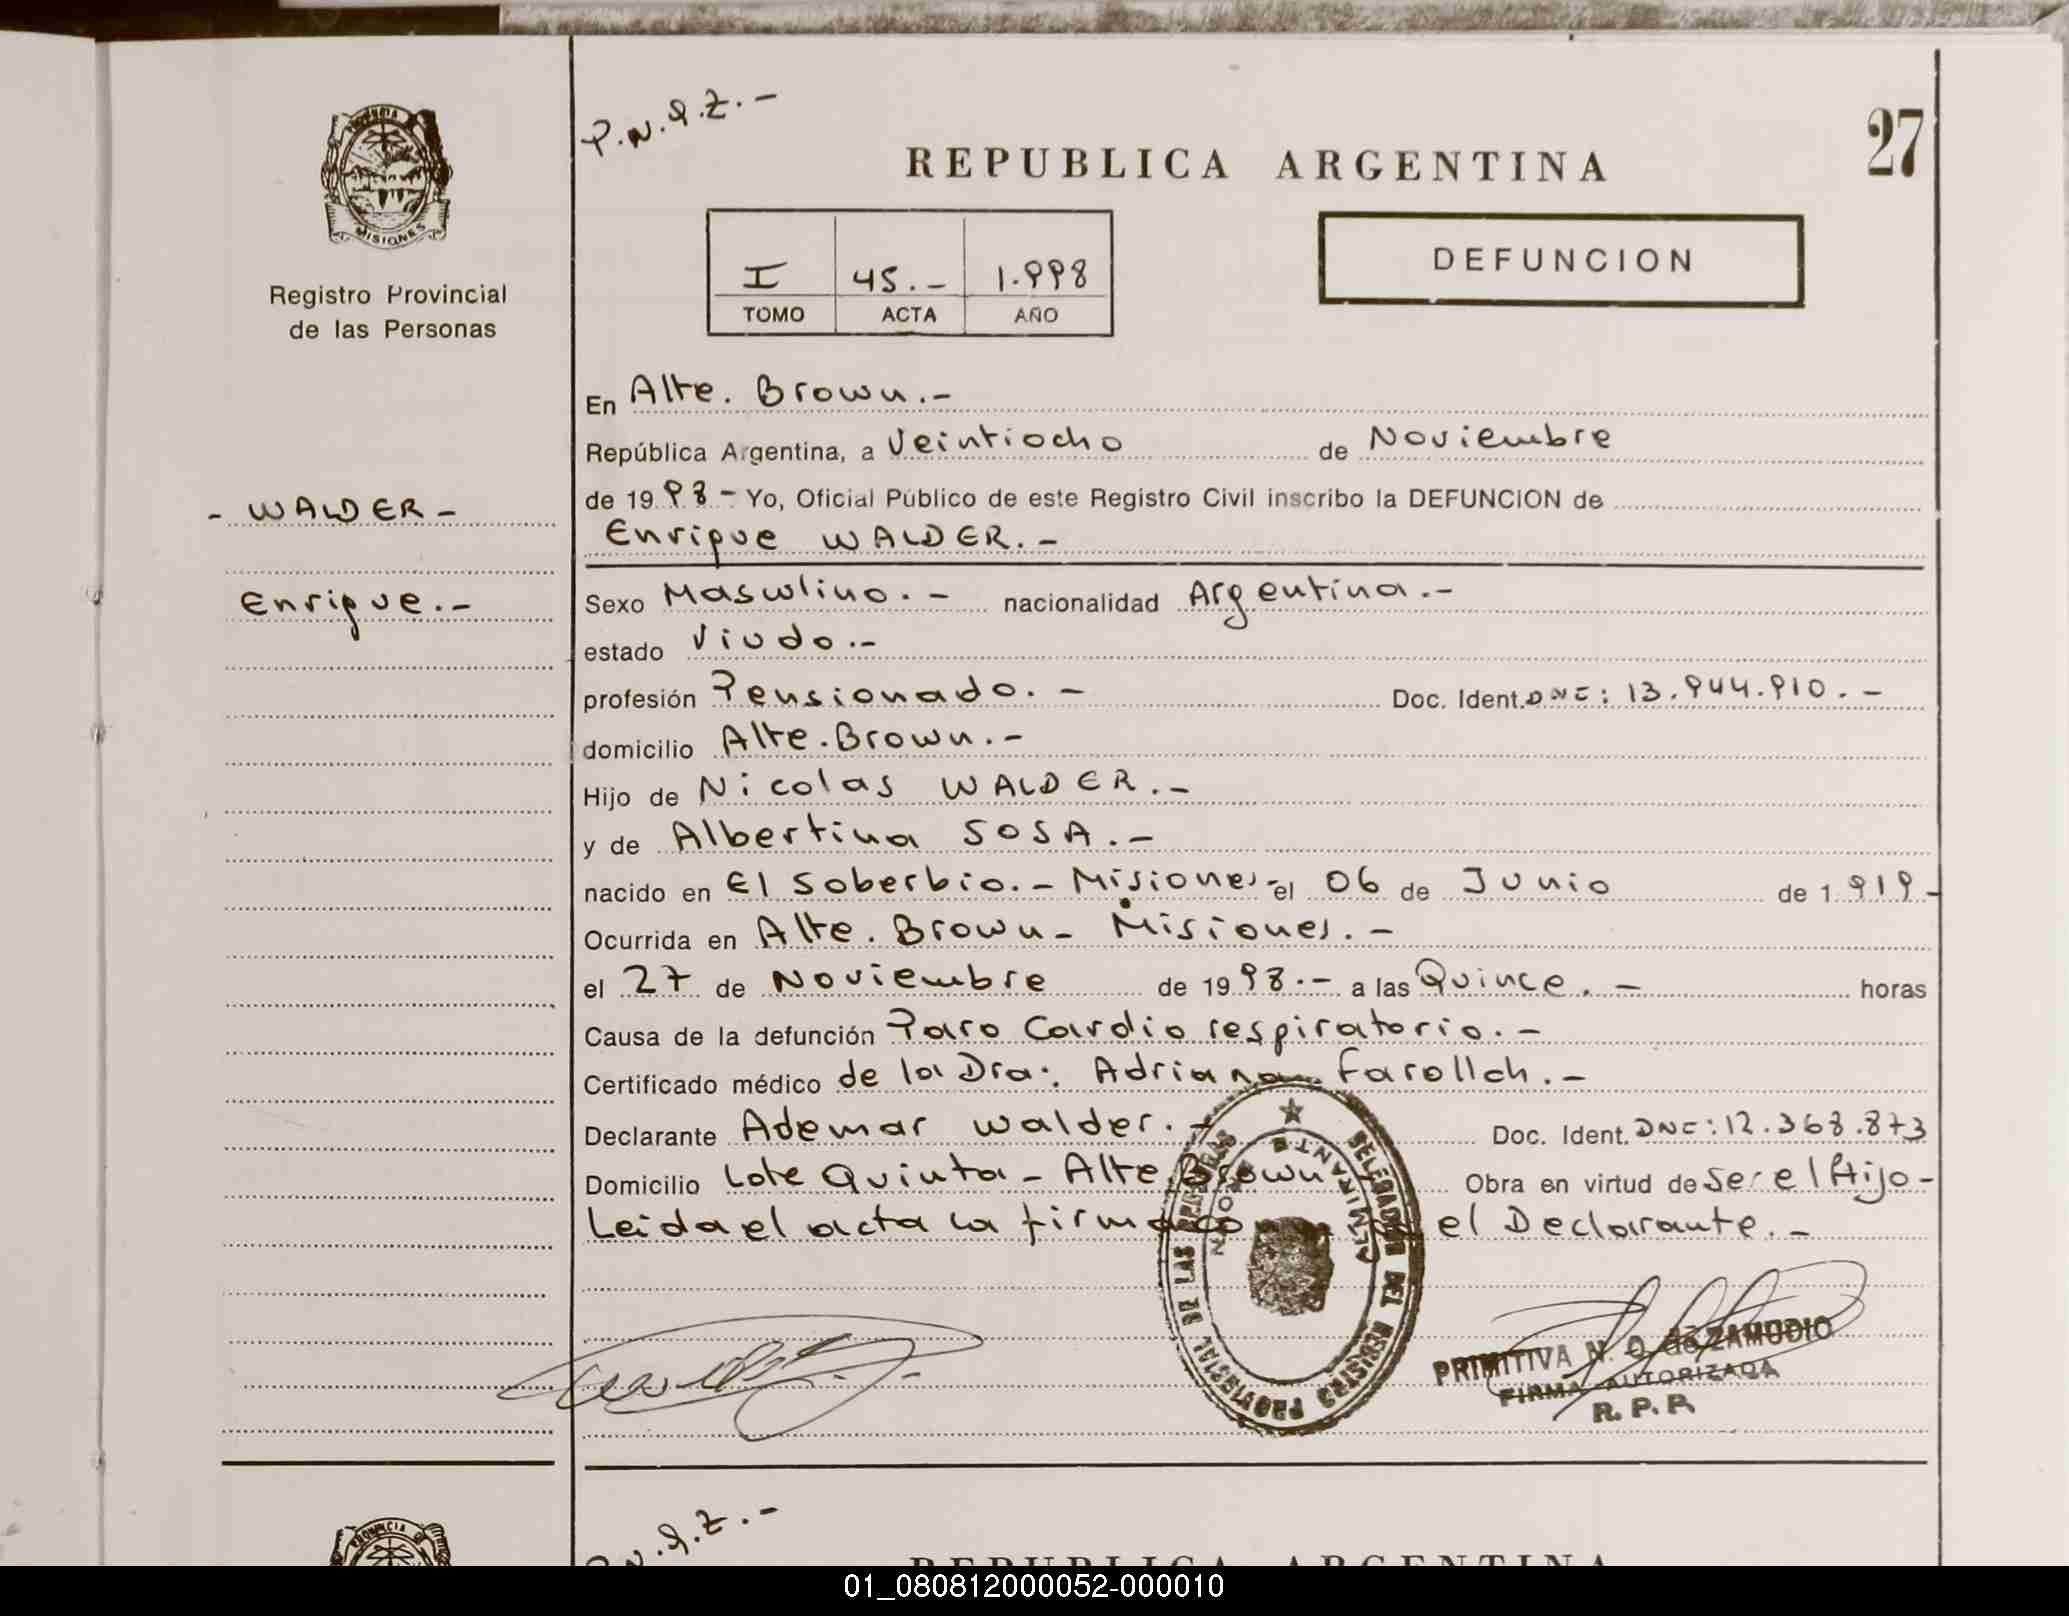 P.N.Q.Z.-
REPUBLICA ARGENTINA
27
PROVINCIA DE
MISIONES
Registro Provincial
de las Personas
I 45.- 1.998
TOMO ACTA AÑO
DEFUNCION
En Alte. Brown.-
República Argentina, a Veintiocho de Noviembre
de 1998 - Yo, Oficial Público de este Registro Civil inscribo la DEFUNCION de
- WALDER -
Enrique WALDER.-
Enrique.-
Sexo Masculino.- nacionalidad Argentina.-
estado Viudo.-
profesión Pensionado.- Doc. Ident. DNI: 13.944.910.-
domicilio Alte. Brown.-
Hijo de Nicolas WALDER.-
y de Albertina SOSA.-
nacido en El Soberbio.- Misiones- el 06 de Junio de 1.919-
Ocurrida en Alte. Brown- Misiones.-
el 27 de Noviembre de 1998.- a las Quince.- horas
Causa de la defunción Paro Cardio respiratorio.-
Certificado médico de la Dra. Adriana Farollch.-
Declarante Ademar Walder.- Doc. Ident. DNI: 12.368.873
Domicilio Lote Quinta - Alte Brown Obra en virtud de Ser el Hijo-
Leida el acta la firma el Declarante.-
DELEGADOR DEL REGISTRO PROVINCIAL DE LAS PERSONAS
ALMIRANTE BROWN
PRIMITIVA N. Q. de ZAMUDIO
FIRMA AUTORIZADA
R. P. P.
PROVINCIA DE
N.Q.Z.-
REPUBLICA ARGENTINA
01_080812000052-000010